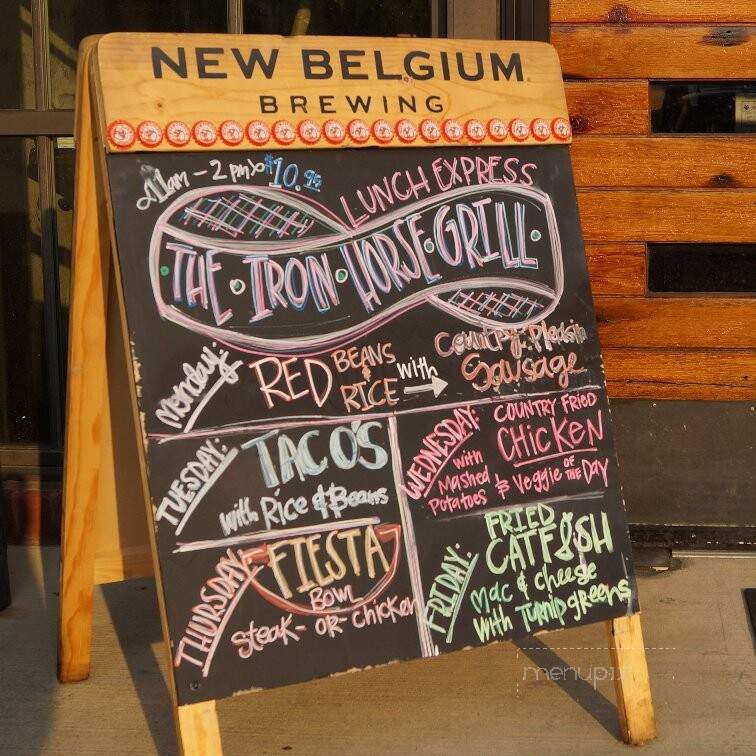 NEW BELGIUM
BREWING
11am - 2pm $10.95
LUNCH EXPRESS
THE • IRON • HORSE • GRILL •
Monday: RED BEANS & RICE with → Country Pleasin Sausage
TUESDAY: TACOS
with Rice & Beans
WEDNESDAY: COUNTRY FRIED
CHICKEN
with Mashed Potatoes & Veggie OF THE Day
THURSDAY: FIESTA
BOWL
Steak - OR - Chicken
FRIDAY: FRIED
CATFISH
Mac & cheese
with Turnip greens
menupix